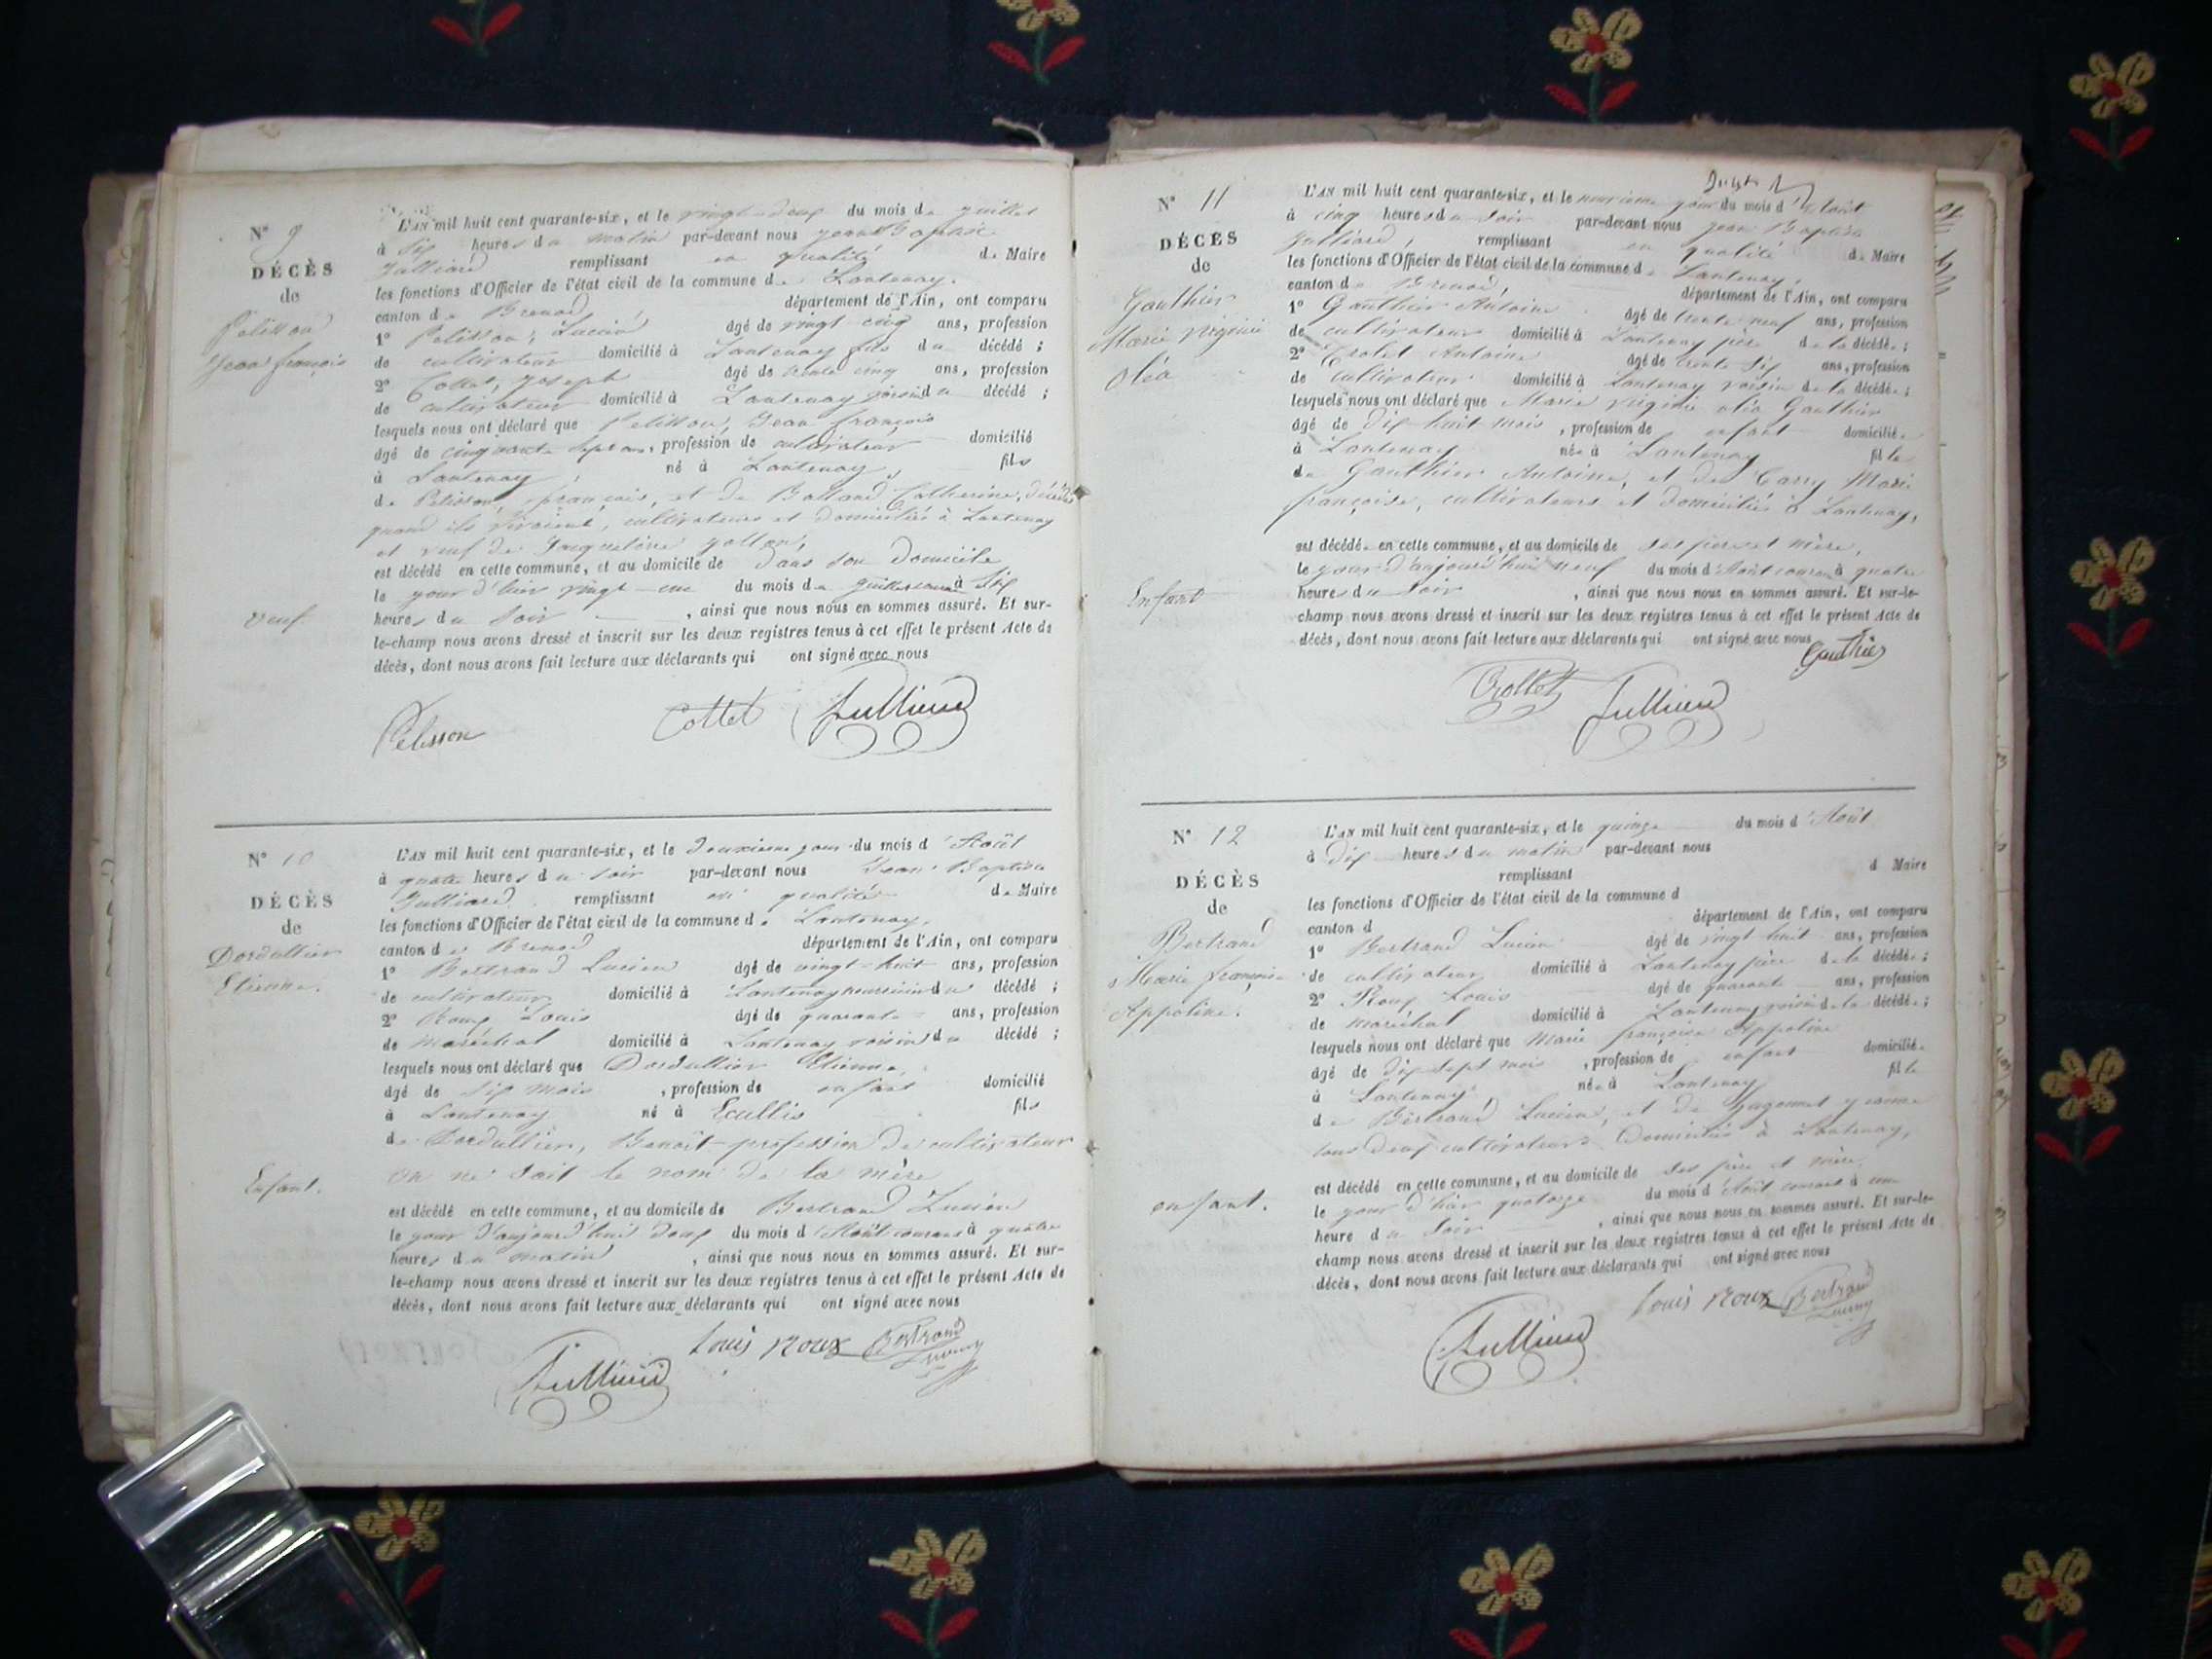 N° 9
DÉCÈS
de
Pelisson
Jean françois
veuf
L'AN mil huit cent quarante-six, et le vingt-deux du mois de juillet
à six heures du matin par-devant nous Jean Baptiste
Julliard remplissant en qualité de Maire
les fonctions d'Officier de l'état civil de la commune de Lantenay,
canton de Brenod, département de l'Ain, ont comparu
1° Pelisson, Lucien âgé de vingt-cinq ans, profession
de cultivateur domicilié à Lantenay fils du décédé ;
2° Collet, Joseph âgé de trente cinq ans, profession
de cultivateur domicilié à Lantenay voisin du décédé ;
lesquels nous ont déclaré que Pelisson, Jean françois
âgé de cinquante sept ans, profession de cultivateur domicilié
à Lantenay, né à Lantenay, fils
de Pelisson, français, et de Balland Catherine, décédés
quand ils vivaient, cultivateurs et domiciliés à Lantenay
et veuf de
est décédé en cette commune, et au domicile de dans son domicile
le jour d'hier vingt-un du mois de juillet courant à six
heures du soir, ainsi que nous nous en sommes assuré. Et sur-
le-champ nous avons dressé et inscrit sur les deux registres tenus à cet effet le présent Acte de
décès, dont nous avons fait lecture aux déclarants qui ont signé avec nous
Pelisson Collet Julliard
N° 10
DÉCÈS
de
Dordullier
Etienne.
Enfant.
L'AN mil huit cent quarante-six, et le deuxième jour du mois d'Août
à quatre heures du soir par-devant nous Jean Baptiste
Julliard remplissant en qualité de Maire
les fonctions d'Officier de l'état civil de la commune de Lantenay,
canton de Brenod département de l'Ain, ont comparu
1° Bertrand Lucien âgé de vingt-huit ans, profession
de cultivateur domicilié à Lantenay du décédé ;
2° Roux Louis âgé de quarante ans, profession
de maréchal domicilié à Lantenay voisin du décédé ;
lesquels nous ont déclaré que Dordullier Etienne,
âgé de six mois, profession de enfant domicilié
à Lantenay né à fils
de Dordullier, Benoît profession de cultivateur
on ne sait le nom de la mère
est décédé en cette commune, et au domicile de Bertrand Lucien
le jour d'aujourd'hui deux du mois d'Août courant à quatre
heures du matin, ainsi que nous nous en sommes assuré. Et sur-
le-champ nous avons dressé et inscrit sur les deux registres tenus à cet effet le présent Acte de
décès, dont nous avons fait lecture aux déclarants qui ont signé avec nous
Julliard Louis Roux Bertrand
N° 11
DÉCÈS
de
Gauthier
Marie Virginie
oléa
Enfant
L'AN mil huit cent quarante-six, et le neuvième jour du mois d'Août
à cinq heures du soir par-devant nous Jean Baptiste
Julliard, remplissant en qualité de Maire
les fonctions d'Officier de l'état civil de la commune de Lantenay,
canton de Brenod, département de l'Ain, ont comparu
1° Gauthier Antoine âgé de trente neuf ans, profession
de cultivateur domicilié à Lantenay père de la décédée ;
2° Crolet Antoine âgé de trente six ans, profession
de cultivateur domicilié à Lantenay voisin de la décédée ;
lesquels nous ont déclaré que Marie Virginie oléa Gauthier
âgé de dix huit mois, profession de enfant domiciliée
à Lantenay née à Lantenay fille
de Gauthier Antoine, et de Carry Marie
françoise, cultivateurs et domiciliés à Lantenay,
est décédée en cette commune, et au domicile de ses père et mère,
le jour d'aujourd'hui neuf du mois d'Août courant à quatre
heures du soir, ainsi que nous nous en sommes assuré. Et sur-le-
champ nous avons dressé et inscrit sur les deux registres tenus à cet effet le présent Acte de
décès, dont nous avons fait lecture aux déclarants qui ont signé avec nous
Gauthier
Crollet Julliard
N° 12
DÉCÈS
de
Bertrand
Marie françoise
Appoline.
enfant.
L'AN mil huit cent quarante-six, et le quinze du mois d'Août
à dix heures du matin par-devant nous
remplissant d Maire
les fonctions d'Officier de l'état civil de la commune d
canton d département de l'Ain, ont comparu
1° Bertrand Lucien âgé de vingt huit ans, profession
de cultivateur domicilié à Lantenay père de la décédée ;
2° Roux Louis âgé de quarante ans, profession
de maréchal domicilié à Lantenay voisin de la décédée ;
lesquels nous ont déclaré que Marie françoise Appoline
âgé de dix sept mois, profession de enfant domiciliée
à Lantenay née à Lantenay fille
de Bertrand Lucien, et de jeanne
tous deux cultivateurs domiciliés à Lantenay,
est décédé en cette commune, et au domicile de ses père et mère
le jour d'hier quatorze du mois d'Août courant à une
heure du soir, ainsi que nous nous en sommes assuré. Et sur-le-
champ nous avons dressé et inscrit sur les deux registres tenus à cet effet le présent Acte de
décès, dont nous avons fait lecture aux déclarants qui ont signé avec nous
Julliard Louis Roux Bertrand